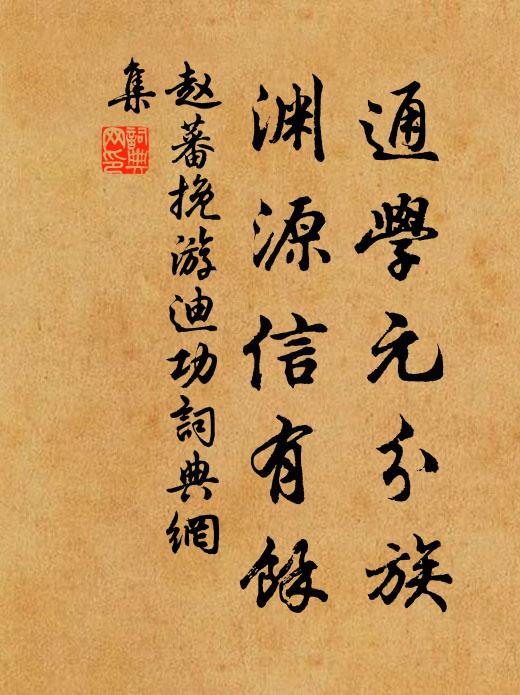 通學元分族
淵源信有餘
赵蕃挽游迪功詞典網
集
詞典
网印